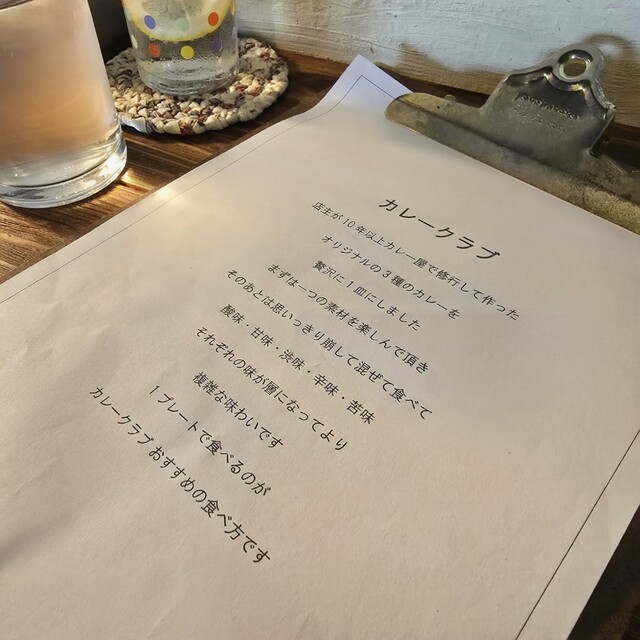 カレークラブ
店主が10年以上カレー屋で修行して作った
オリジナルの3種のカレーを
贅沢に1皿にしました
まずは一つの素材を楽しんで頂き
そのあとは思いっきり崩して混ぜて食べて
酸味・甘味・渋味・辛味・苦味
それぞれの味が層になってより
複雑な味わいです
1プレートで食べるのが
カレークラブおすすめの食べ方です